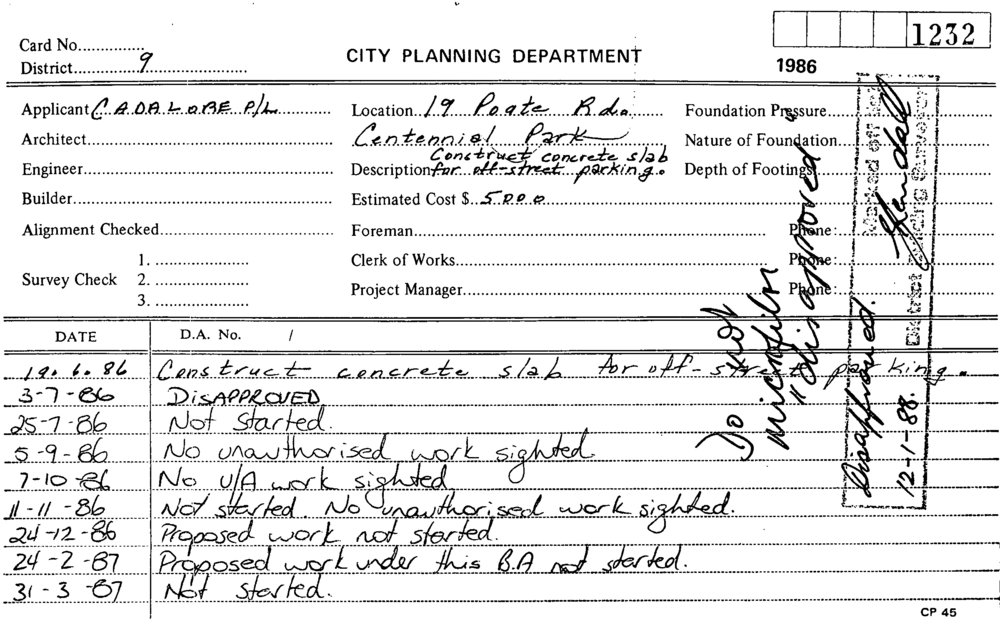 1232
Card No...............
CITY PLANNING DEPARTMENT
District..........9..........
1986
Applicant CADALOBE P/L
Location 19 Poate Rd.
Foundation Pressure
Architect
Centennial Park
Nature of Foundation
Construct concrete slab
Engineer
Description for off-street parking.
Depth of Footings
Builder
Estimated Cost $ 5000
Alignment Checked
Foreman
Phone:
1.
Clerk of Works
Phone:
Survey Check 2.
Project Manager
Phone:
3.
DATE D.A. No. /
19.6.86 Construct concrete slab for off-street parking.
3-7-86 DISAPPROVED
25-7-86 Not Started.
5-9-86 No unauthorised work sighted
7-10-86 No U/A work sighted
11-11-86 Not started. No unauthorised work sighted.
24-12-86 Proposed work not started.
24-2-87 Proposed work under this B.A not started.
31-3-87 Not started.
Do not
microfilm
"disapproved"
Disapproved.
Marked off
12-1-88. District Building Surveyor
CP 45